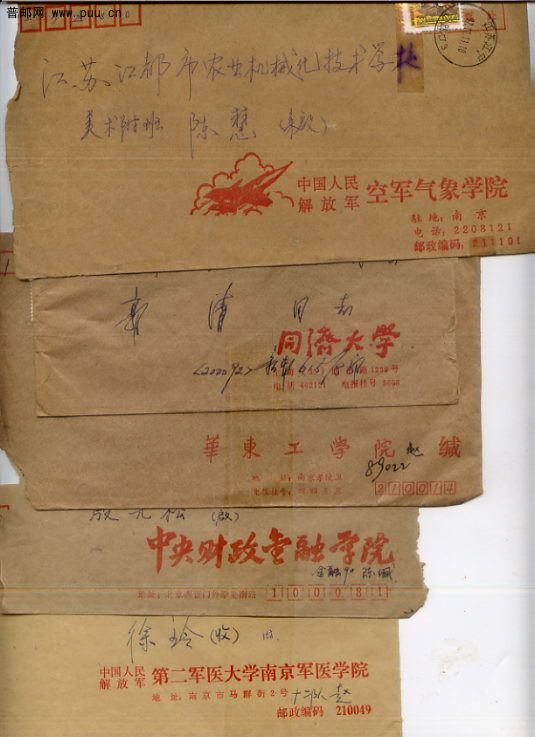 普邮网 www.puu.cn
江苏江都市农业机械化技术学校
美术附班 陈慧(亲启)
中国人民
解放军 空军气象学院
驻地:南京
电话:2208121
邮政编码:211101
清 同志
同济大学
<200092>
1239号
电话 462121 电报挂号
華東工学院 赵 缄
89022
地址:南京孝陵卫
210014
(启)
中央财政金融学院
金融90 陈缄
地址:北京西直门外学院南路 100081
徐玲(收)
中国人民
解放军 第二军医大学南京军医学院
地址:南京市马群街2号
十队 赵
邮政编码 210049